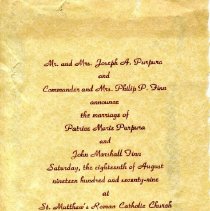 Mr. and Mrs. Joseph A. Purpura
and
Commander and Mrs. Philip P. Finn
announce
the marriage of
Patrice Marie Purpura
and
John Marshall Finn
Saturday, the eighteenth of August
nineteen hundred and seventy-nine
at
St. Matthew's Roman Catholic Church